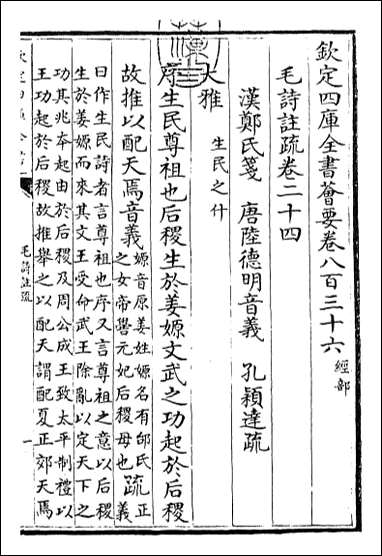 欽定四庫全書薈要卷八百三十六 經部
毛詩註疏卷二十四
漢鄭氏箋 唐陸德明音義 孔穎達疏
大雅 生民之什
序生民尊祖也后稷生於姜嫄文武之功起於后稷
故推以配天焉音義 嫄音原姜姓嫄名有邰氏
之女帝嚳元妃后稷母也 疏 正
義
曰作生民詩者言尊祖也序又言尊祖之意以后稷
生於姜嫄而來其文王受命武王除亂以定天下之
功其兆本起由於后稷及周公成王致太平制禮以
王功起於后稷故推舉之以配天謂配夏正郊天焉
毛詩註疏
一